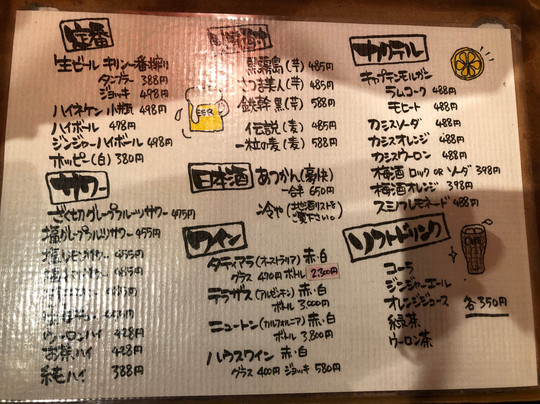 定番
生ビール キリン一番搾り
タンブラー 388円
ジョッキ 498円
ハイネケン 小瓶 498円
ハイボール 498円
ジンジャーハイボール 498円
ホッピー(白) 380円
サワー
ざく切グレープフルーツサワー 475円
塩グレープフルーツサワー 455円
455円
ウーロンハイ 428円
お茶ハイ 428円
純ハイ 388円
黒霧島(芋) 485円
さつま美人(芋) 485円
鉄幹 黒(芋) 588円
伝説(麦) 485円
一粒の麦(麦) 588円
日本酒
あつかん(豪快)
一合半 650円
冷や(地酒リストをご覧下さい。)
ワイン
タティアラ(オーストラリア) 赤・白
グラス 490円 ボトル 2,300円
テラザス(アルゼンチン) 赤・白
ボトル 3,000円
ニュートン(カルフォルニア) 赤・白
ボトル 3,800円
ハウスワイン 赤・白
グラス 400円 ジョッキ 580円
カクテル
キャプテンモルガン
ラムコーク 488円
モヒート 488円
カシスソーダ 488円
カシスオレンジ 488円
カシスウーロン 488円
梅酒 ロック OR ソーダ 398円
梅酒オレンジ 398円
スミノフレモネード 488円
ソフトドリンク
コーラ
ジンジャーエール
オレンジジュース
緑茶
ウーロン茶
各350円
BEER